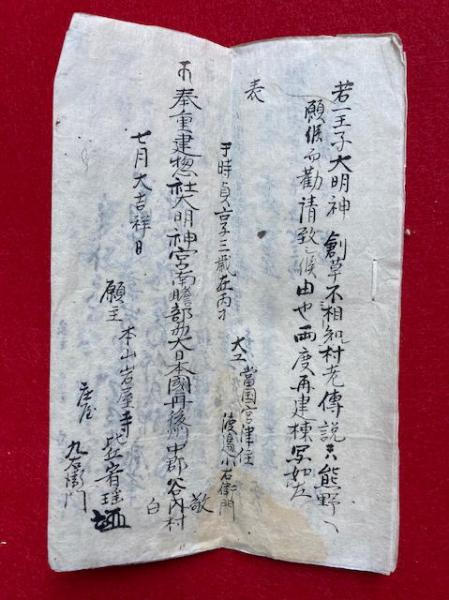 若一王子大明神 創草不相知村老傳説ニ熊野ヘ
願候而勸請致候由也両度再建棟写如左
表
于時貞享三歳在丙寸
大工 當国宮津住
渡邉小右衛門
奉重建惣社大明神宮南贍部州大日本國丹後州中郡谷内村
敬
白
七月大吉祥日
願主 本山岩屋寺
庄屋 九右衛門